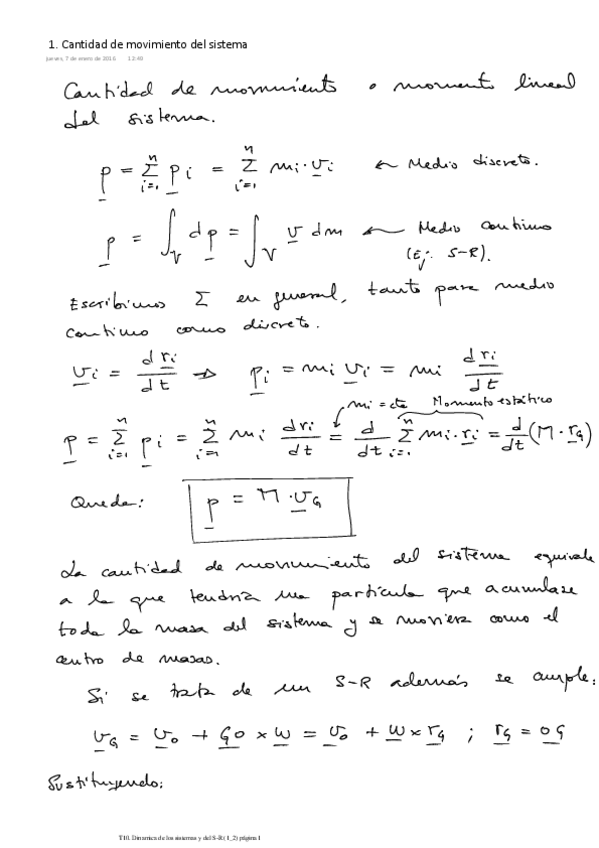 1. Cantidad de movimiento del sistema
jueves, 7 de enero de 2016 12:49
Cantidad de movimiento o momento lineal
del sistema.
p = Σ_{i=1}^{n} p_i = Σ_{i=1}^{n} m_i · v_i ← Medio discreto.
p = ∫_V dp = ∫_V v dm ← Medio continuo
(Ej. S-R).
Escribimos Σ en general, tanto para medio
continuo como discreto.
v_i = d r_i / dt ⇒ p_i = m_i v_i = m_i d r_i / dt
m_i = cte Momento estático
p = Σ_{i=1}^{n} p_i = Σ_{i=1}^{n} m_i d r_i / dt = d/dt Σ_{i=1}^{n} m_i · r_i = d/dt (M · r_G)
Queda: p = M · v_G
La cantidad de movimiento del sistema equivale
a la que tendría una partícula que acumulase
toda la masa del sistema y se moviera como el
centro de masas.
Si se trata de un S-R además se cumple:
v_G = v_0 + GO × ω = v_0 + ω × r_G ; r_G = OG
Sustituyendo:
T10. Dinamica de los sistemas y del S-R (1_2) página 1